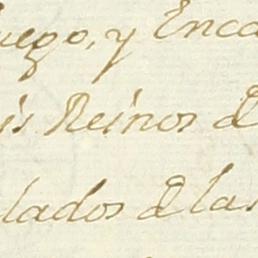 luego, y Enca
is Reinos d
lados de las